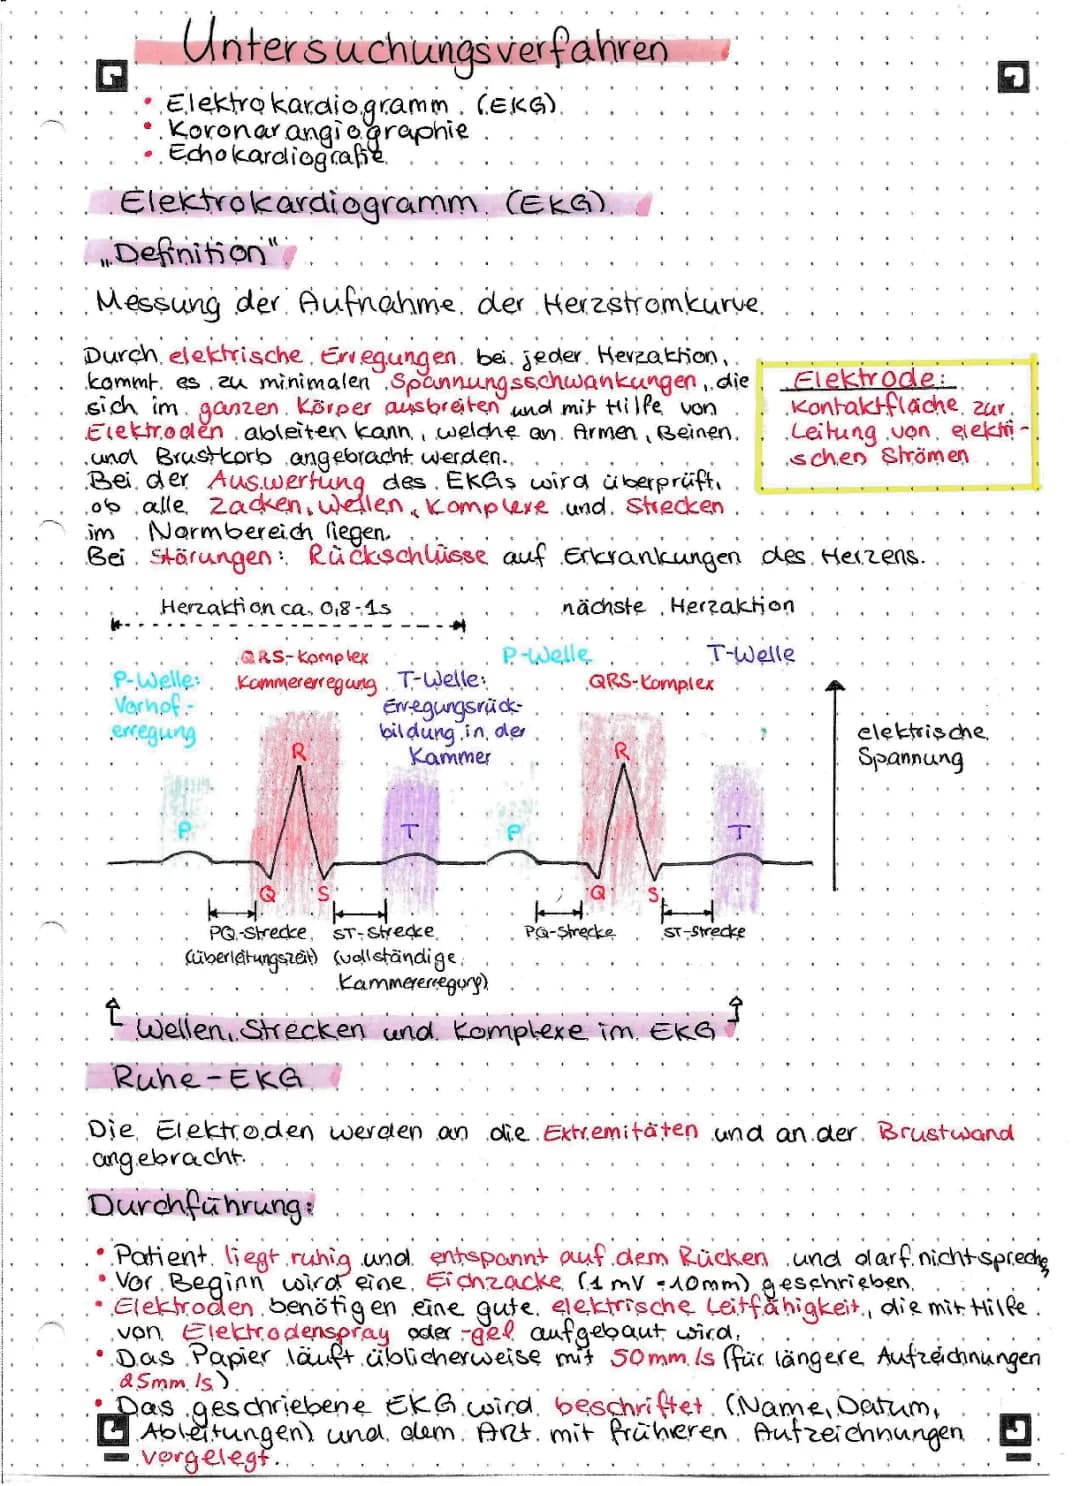 Untersuchungsverfahren
• Elektrokardiogramm (EKG)
• Koronarangiographie
• Echokardiografie
Elektrokardiogramm (EKG)
„Definition“
Messung der Aufnahme der Herzstromkurve.
Durch elektrische Erregungen bei jeder Herzaktion,
kommt es zu minimalen Spannungsschwankungen, die
sich im ganzen Körper ausbreiten und mit Hilfe von
Elektroden ableiten kann, welche an Armen, Beinen,
und Brustkorb angebracht werden.
Elektrode:
Kontaktfläche zur
Leitung von elektri-
schen Strömen
Bei der Auswertung des EKGs wird überprüft,
ob alle Zacken, Wellen, Komplexe und Strecken
im Normbereich liegen.
Bei Störungen: Rückschlüsse auf Erkrankungen des Herzens.
Herzaktion ca. 0,8-1s
nächste Herzaktion
P-Welle:
Vorhof-
erregung
QRS-Komplex
Kammererregung
T-Welle:
Erregungsrück-
bildung in der
Kammer
P-Welle
QRS-Komplex
T-Welle
elektrische
Spannung
P
R
T
P
R
T
Q
S
Q
S
PQ-Strecke
(Überleitungszeit)
ST-Strecke
(vollständige
Kammererregung)
PQ-Strecke
ST-Strecke
Wellen, Strecken und Komplexe im EKG
Ruhe-EKG
Die Elektroden werden an die Extremitäten und an der Brustwand
angebracht.
Durchführung:
• Patient liegt ruhig und entspannt auf dem Rücken und darf nicht sprechen
• Vor Beginn wird eine Eichzacke (1 mV = 10mm) geschrieben.
• Elektroden benötigen eine gute elektrische Leitfähigkeit, die mit Hilfe
von Elektrodenspray oder -gel aufgebaut wird.
• Das Papier läuft üblicherweise mit 50mm/s (für längere Aufzeichnungen
25mm/s)
• Das geschriebene EKG wird beschriftet (Name, Datum,
Ableitungen) und dem Arzt mit früheren Aufzeichnungen
vorgelegt.